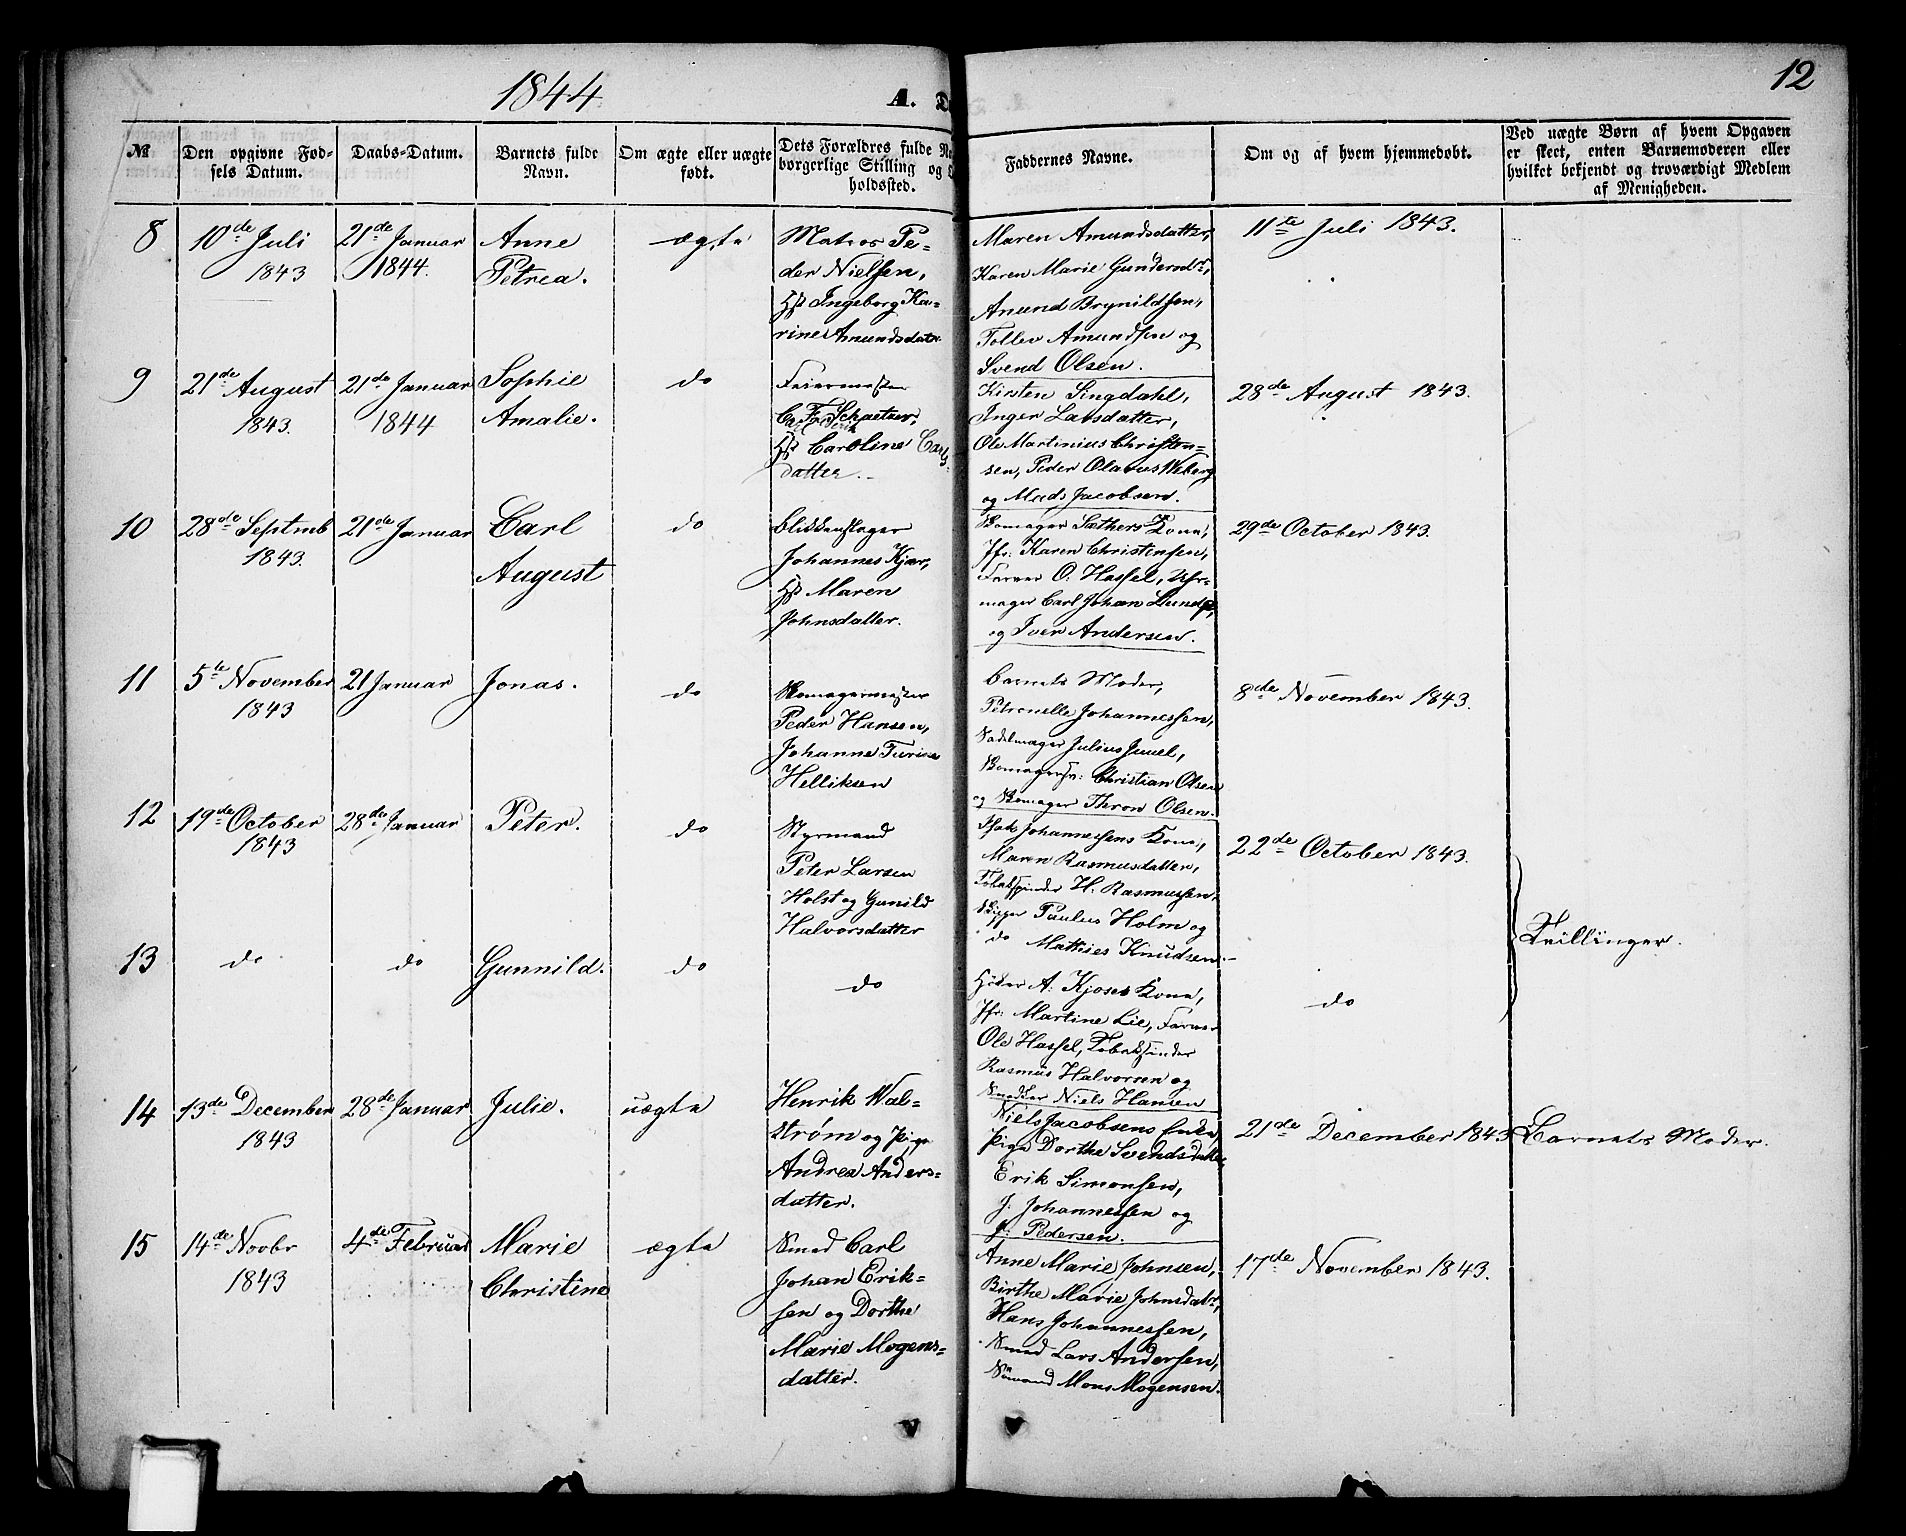 1844
A. D
12
№
Den opgivne Fød-
sels Datum.
Daabs-Datum.
Barnets fulde
Navn.
Om ægte eller uægte
født.
Dets Forældres fulde Na
borgerlige Stilling og O
holdssted.
Faddernes Navne.
Om og af hvem hjemmedøbt.
Ved uægte Børn af hvem Opgaven
er skeet, enten Barnemoderen eller
hvilket bekjendt og troværdigt Medlem
af Menigheden.
8
10de Juli
1843
21de Januar
1844.
Anne
Petrea.
ægte
Matros Pe-
der Nielsen,
Hst Ingeborg Ka-
rine Amundsdatr
Maren Amundsdatter,
Karen Marie Gundersdr,
Anund Brynildsen,
Tollev Amundsen og
Svend Olsen.
11te Juli 1843.
9
21de August
1843.
21de Januar
1844
Sophie
Amalie.
do
Feiermester
Carl Fredrik Schætzer,
Hst Caroline Carls
datter.
Kirsten Lingdahl,
Inger Larsdatter,
Ole Martinius Christen-
sen, Peder Olavus Weberg
og Mads Jacobsen.
28de August 1843.
10
28de Septmb
1843.
21de Januar
Carl
August
do
Blikkenslager
Johannes Kjær,
Hst Maren
Johnsdatter.
Skomager Sæthers Kone,
Jfr: Karen Christensen,
Farver O. Hassel, Uhr-
mager Carl Johan Lund
og Iver Andersen.
29de October 1843.
11
5te November
1843
21 Januar
Jonas.
do
Skomagermester
Peder Hansen,
Johanne Turine
Helliksen
Barnets Moder,
Petronelle Johannessen,
Sadelmager Julius Juuel,
Skomagersv: Christian Olsen
og Skomager Thron Olsen.
8de November 1843.
12
19de October
1843
28de Januar
Peter.
do
Styrmand
Peter Larsen
Holst og Gunild
Halvorsdatter
Isak Johannessens Kone,
Maren Rasmusdatter,
Tobakspinder H. Rasmussen,
Skipper Paulus Holm og
do Mathies Knudsen.
22de October 1843.
Tvillinger.
13
do
do
Gunnild.
do
do
Høker A. Kjoses Kone,
Jfr: Martine Lie, Farver
Ole Hassel, Tobakspinder
Rasmus Halvorsen og
Snedker Niels Hansen
do
14
13de December
1843
28de Januar
Julie.
uægte
Henrik Wal-
strøm og Pige
Andrea Anders-
datter.
Niels Jacobsens Enke,
Pige Dorthe Svendsdatter,
Erik Simonsen,
J. Johannessen og
J. Pedersen.
21de December 1843
Barnets Moder.
15
14de Novbr
1843
4de Februar
Marie
Christine
ægte
Smed Carl
Johan Erik-
sen og Dorthe
Marie Mogens-
datter.
Anne Marie Johnsen,
Birthe Marie Johnsdatr,
Hans Johannessen,
Smed Lars Andersen,
Sömand Mons Mogensen.
17de November 1843.